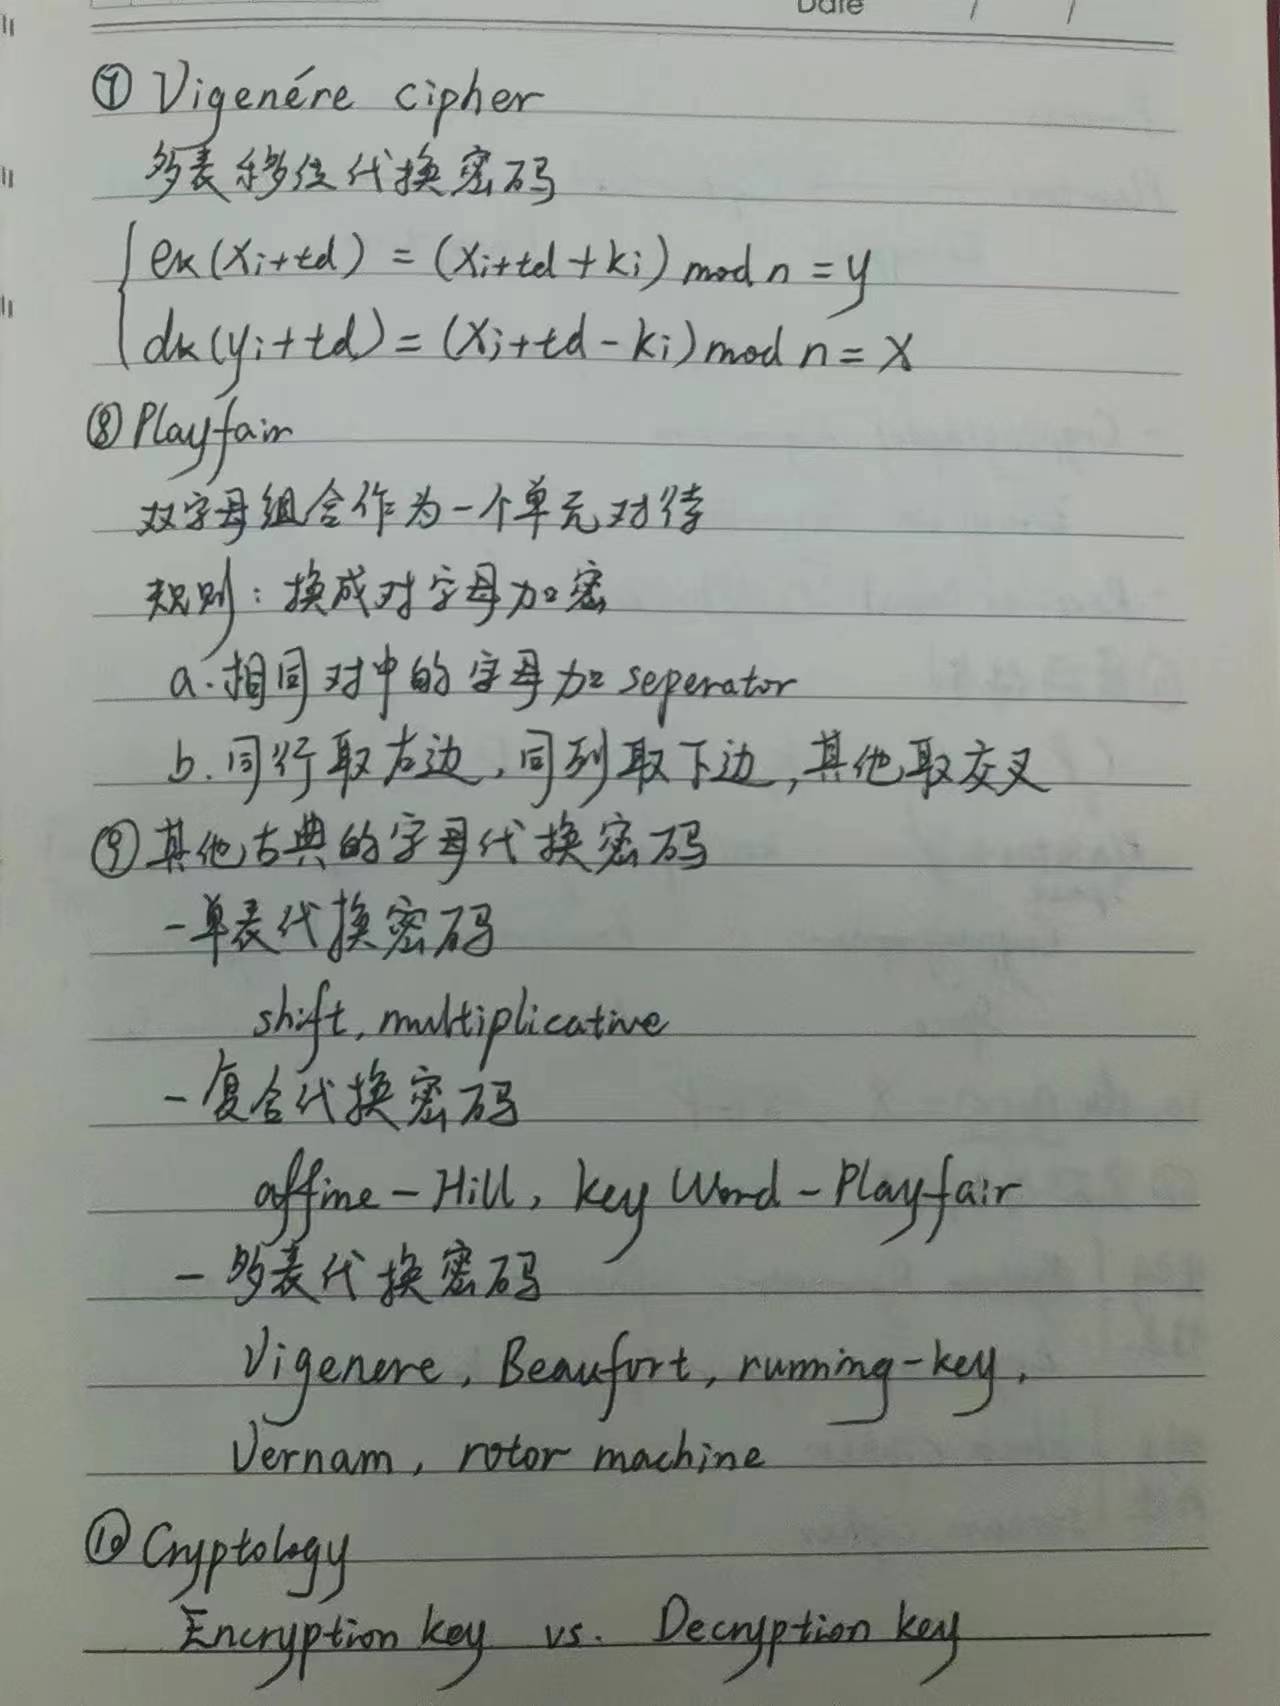 Date / /
⑦ Vigenére cipher
多表移位代换密码
eₖ(xᵢ+td) = (xᵢ+td+kᵢ) mod n = y
dₖ(yᵢ+td) = (xᵢ+td-kᵢ) mod n = x
⑧ Playfair
双字母组合作为一个单元对待
规则：换成对字母加密
a. 相同对中的字母加 seperator
b. 同行取右边，同列取下边，其他取交叉
⑨ 其他古典的字母代换密码
-单表代换密码
shift, multiplicative
-复合代换密码
affine-Hill, key Word-Playfair
-多表代换密码
Vigenere, Beaufort, running-key,
Vernam, rotor machine
⑩ Cryptology
Encryption key vs. Decryption key